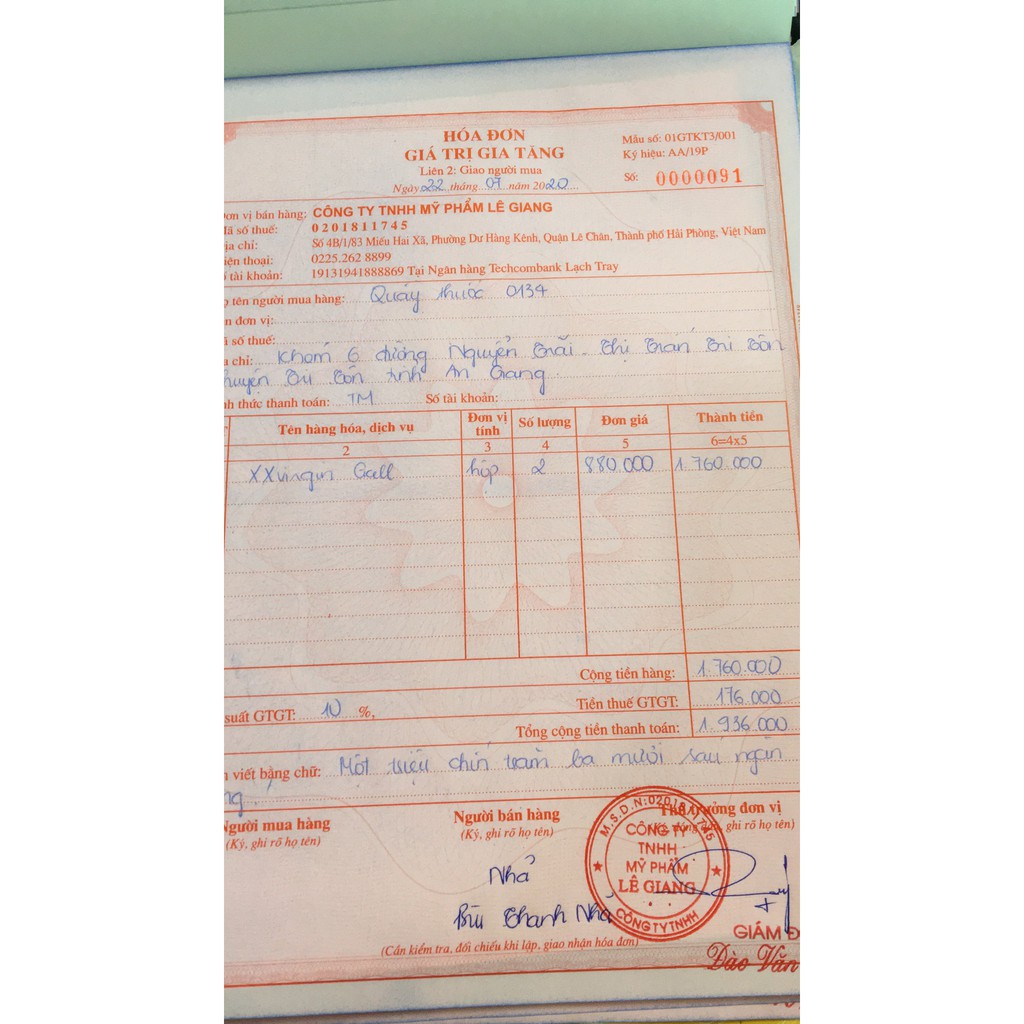 HÓA ĐƠN
GIÁ TRỊ GIA TĂNG
Liên 2: Giao người mua
Ngày 22 tháng 07 năm 2020
Mẫu số: 01GTKT3/001
Ký hiệu: AA/19P
Số: 0000091
ơn vị bán hàng: CÔNG TY TNHH MỸ PHẨM LÊ GIANG
ã số thuế: 0201811745
ịa chỉ: Số 4B/1/83 Miếu Hai Xã, Phường Dư Hàng Kênh, Quận Lê Chân, Thành phố Hải Phòng, Việt Nam
iện thoại: 0225.262 8899
ố tài khoản: 19131941888869 Tại Ngân hàng Techcombank Lạch Tray
ọ tên người mua hàng: Quầy thuốc 0134
n đơn vị:
ã số thuế:
a chỉ: Khóm 6 đường Nguyễn Trãi. Thị Trấn Tri Tôn
huyện Tri Tôn tỉnh An Giang.
nh thức thanh toán: TM Số tài khoản:
Tên hàng hóa, dịch vụ Đơn vị tính Số lượng Đơn giá Thành tiền
2 3 4 5 6=4x5
XXvirgin Gall hộp 2 880.000 1.760.000
Cộng tiền hàng: 1.760.000
suất GTGT: 10 %, Tiền thuế GTGT: 176.000
Tổng cộng tiền thanh toán: 1.936.000
n viết bằng chữ: Một triệu chín trăm ba mươi sáu ngàn
ng.
Người mua hàng Người bán hàng Thủ trưởng đơn vị
(Ký, ghi rõ họ tên) (Ký, ghi rõ họ tên) ghi rõ họ tên)
M.S.D.N:0201811745
CÔNG TY
TNHH
MỸ PHẨM
LÊ GIANG
CÔNG TY TNHH
Nhả
Bùi Thanh Nhả
GIÁM Đ
(Cần kiểm tra, đối chiếu khi lập, giao nhận hóa đơn)
Đào Văn